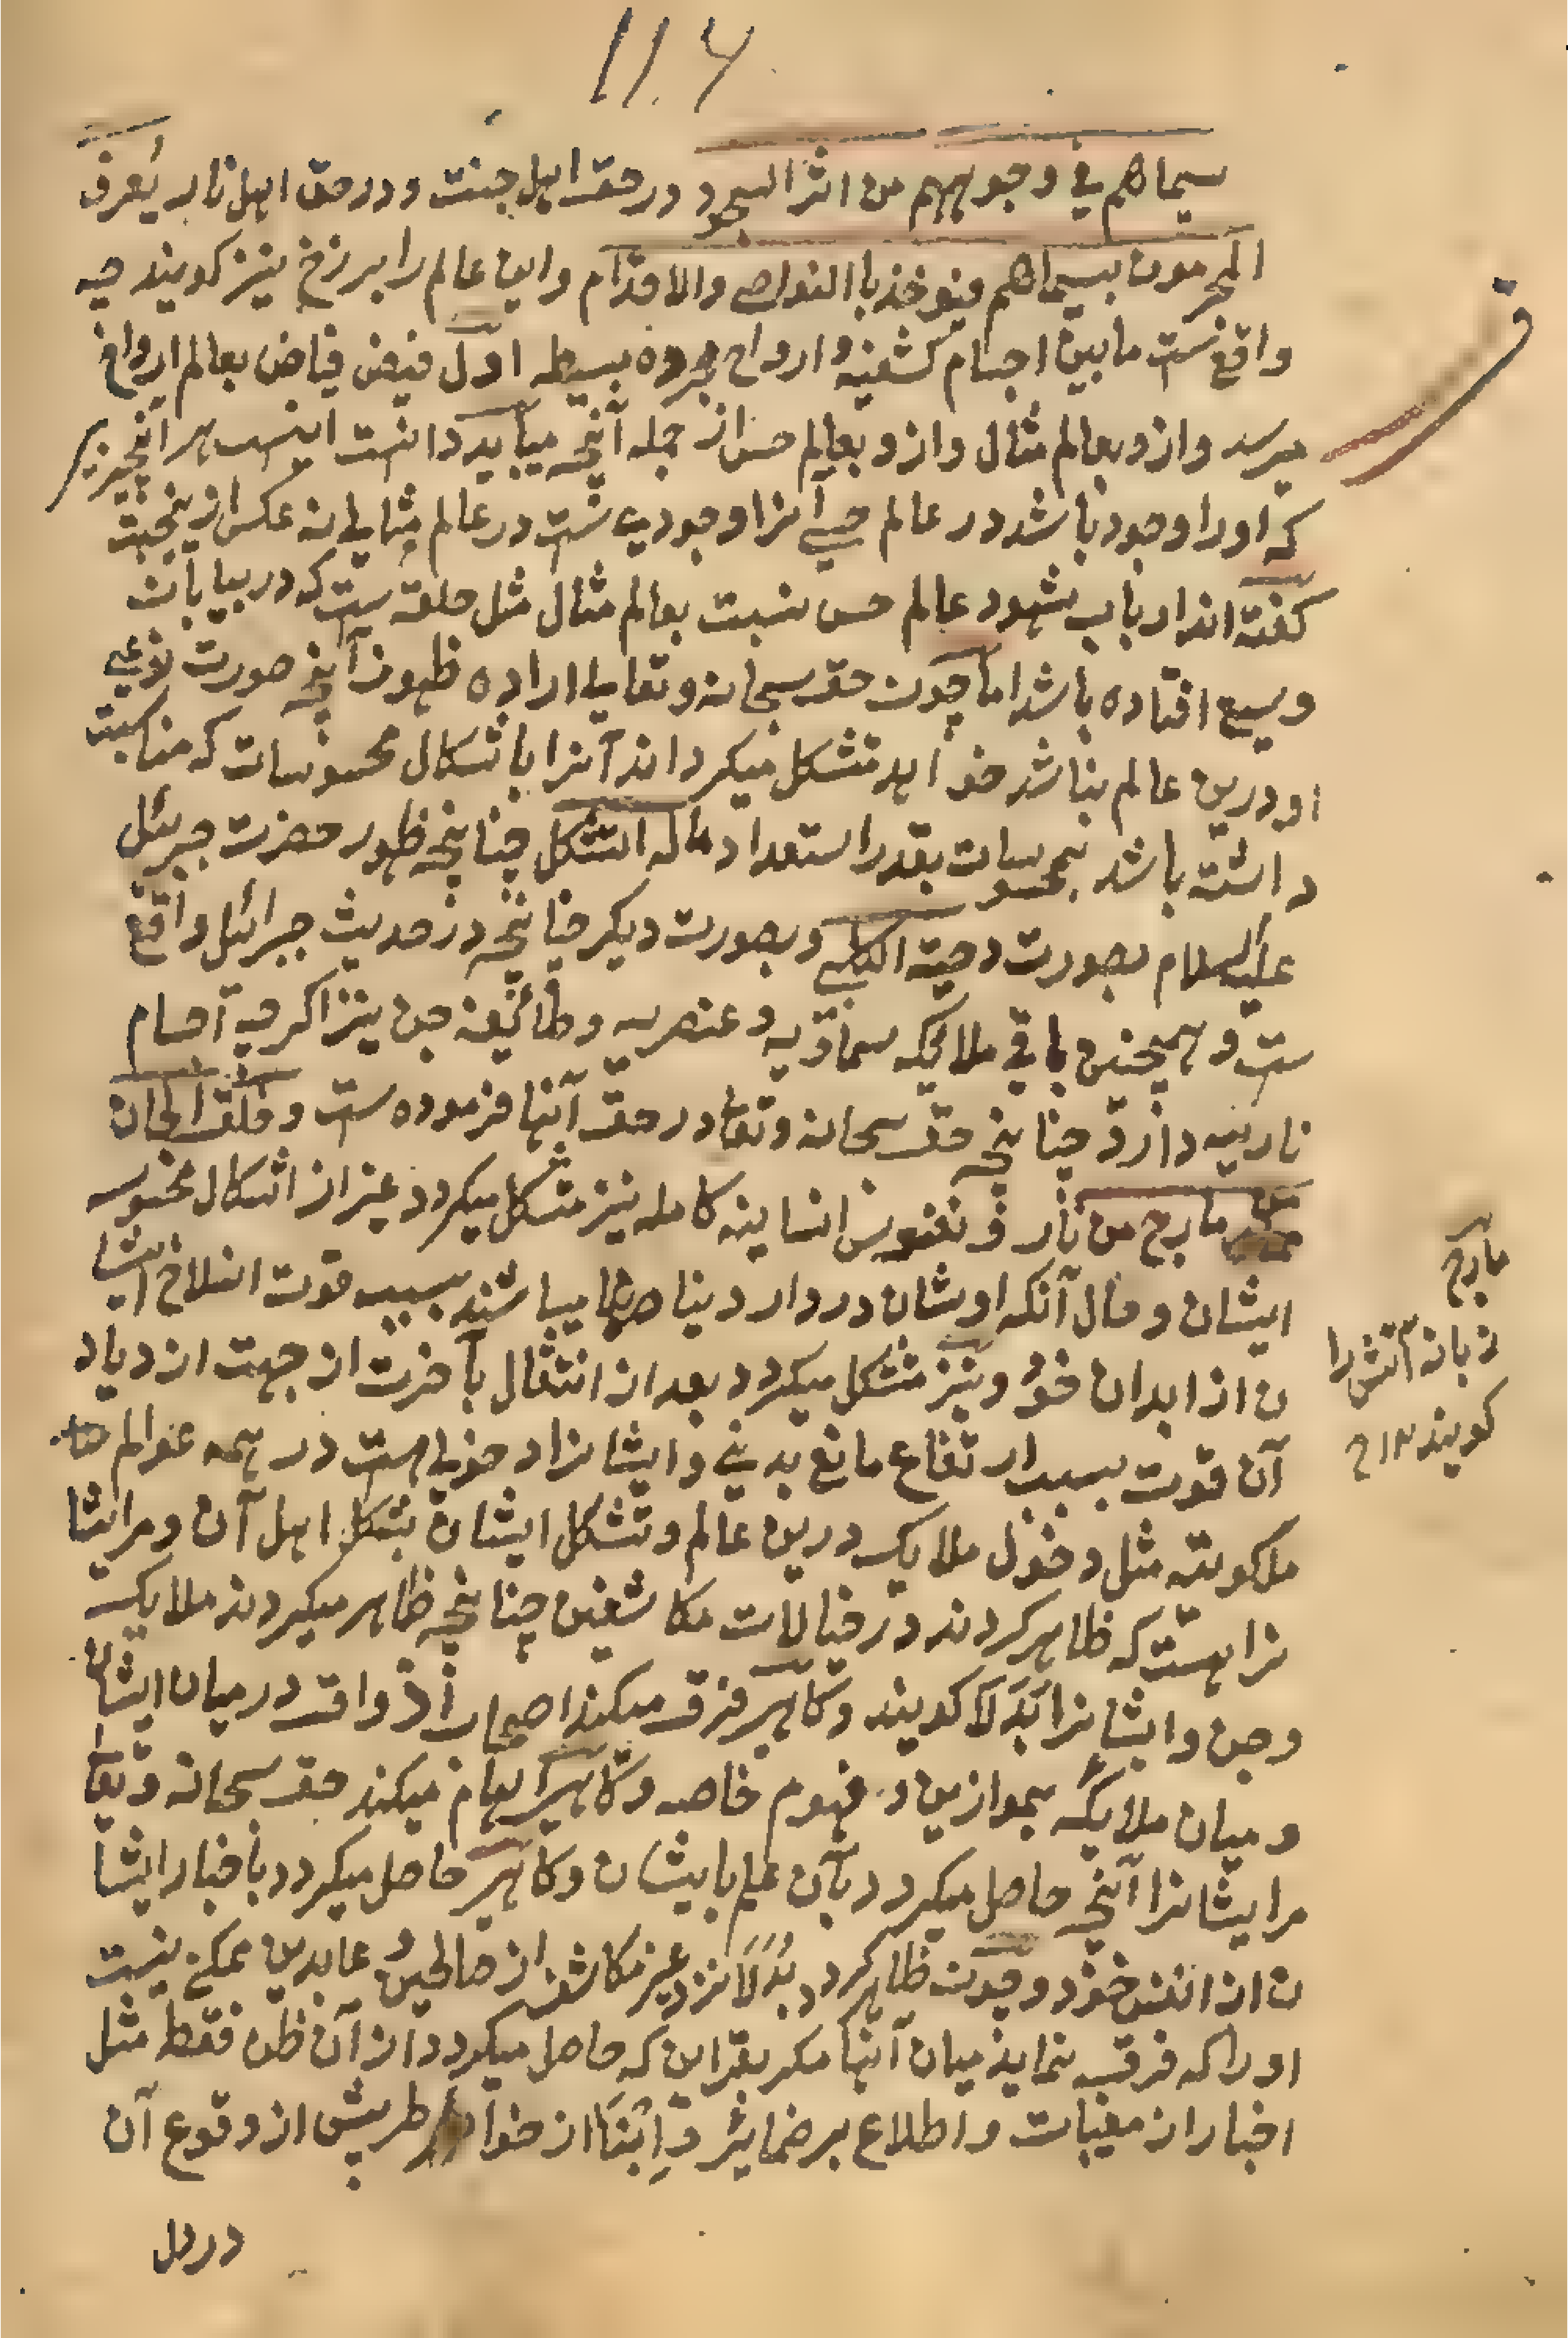 ۱۱۶
سیماهم فی وجوههم من اثر السجود در حق اهل جنت و در حق اهل نار یُعرف
المجرمون بسیماهم فیوخذ باالنواصی والاقدام واین عالم را برزخ نیز کویند چه
واقع ست مابین اجسام کشفیه و ارواح مجرده بسیطه اوّل فیض فیاض بعالم ارواح
میرسد وازو بعالم مثال وازو بعالم حس از جمله آنچه میباید دانست اینست هر آنچیزیرا
که اورا وجود باشد در عالم حسی آنرا وجودیست در عالم مثالی نه عکس ازینجهت
کفته اند ارباب شهود عالم حس نسبت بعالم مثال مثل حلقه ست که در بیابان
وسیع افتاده باشد اما چون حق سبحانه وتعالی اراده ظهور آنچه صورت نوعی
او درین عالم نباشد خواهد متشکل میکرداند آنرا باشکال محسوسات که مناسبت
داشته باشد بمحسوسات بقدر استعداد ماله التشکل چنانچه ظهور حضرت جبرئل
علیه السلام بصورت دحیة الکلبی و بصورت دیکر چنانچه در حدیث جبرائل واقع
ست و همچنین باقی ملائکه سماویه و عنصریه و طائفه جن نیز اکرچه اجسام
ناریه دارد چنانچه حق سبحانه وتعا در حق آنها فرموده ست وخلق الجان
من مارج من نار و نفوس انسانیه کامله نیز متشکل میکردد غیر از اشکال محسوسه
ایشان و حال آنکه اوشان در دار دنیا میباشند بسبب قوت انسلاخ ایشا
ن از ابدان خود و نیز متشکل میکردد بعد از انتقال بآخرت از جهت ازدیاد
آن قوت بسبب ارتفاع مانع بدنی و ایشانراد خولی هست در همه عوالم
ملکوتیه مثل دخول ملایک درین عالم و تشکل ایشان بشکل اهل آن و مرایشا
نرا هست که ظاهر کردند در خیالات مکاشفین چنانچه ظاهر میکردند ملایک
وجن وایشانرا بُدَلَا کویند و کاهی فرق میکند اصحاب اذواق در میان ایشان
و میان ملایکه بموازین و فهوم خاصه و کاهی الهام میکند حق سبحانه وتعا
مرایشانرا آنچه حاصل میکردد بآن علم بایشان و کاهی حاصل میکردد باخبار ایشا
ن از انفس خود و چون ظاهر کردد بُدَلَا نزد غیر مکاشف از صالحین و عابدین ممکن نیست
اورا که فرق نماید میان آنها مکر بقراین که حاصل میکردد از آن ظن فقط مثل
اخبار از مغیبات و اطلاع بر ضمایر و اِنْبَا از خواطر پیش از وقوع آن
مارج
زبانه آتش را
کویند
در دل